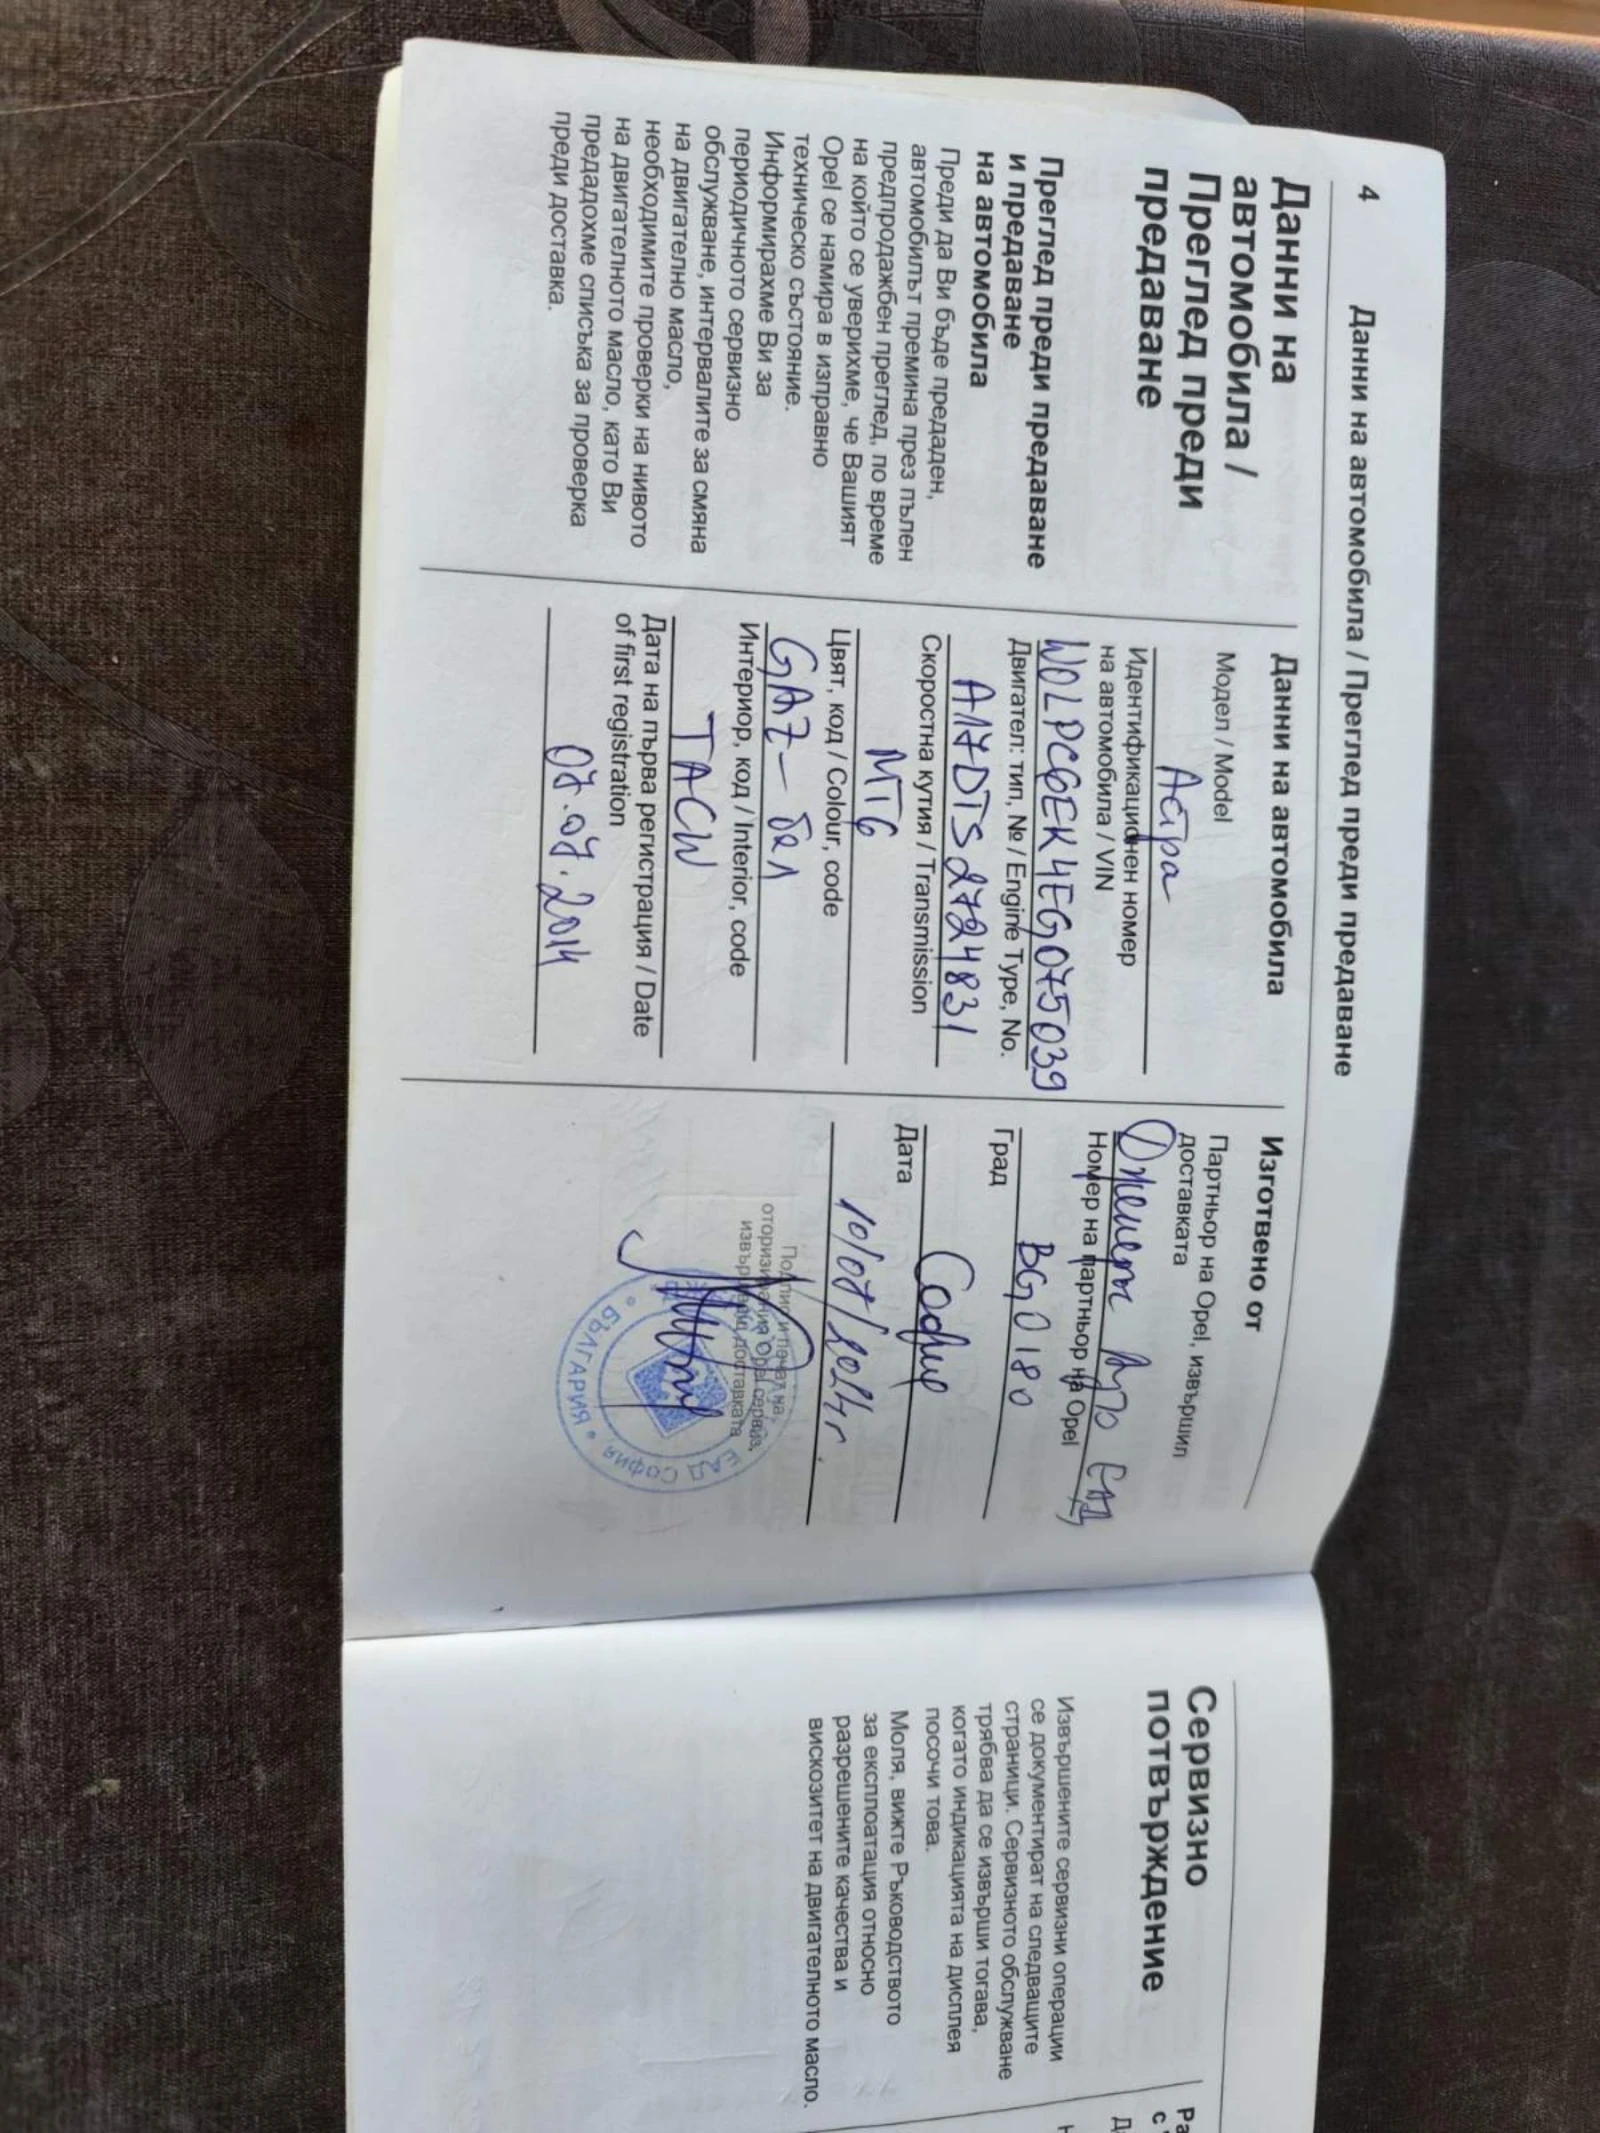 4 Данни на автомобила / Преглед преди предаване
Данни на
автомобила /
Преглед преди
предаване
Преглед преди предаване
и предаване
на автомобила
Преди да Ви бъде предаден,
автомобилът премина през пълен
предпродажбен преглед, по време
на който се уверихме, че Вашият
Opel се намира в изправно
техническо състояние.
Информирахме Ви за
периодичното сервизно
обслужване, интервалите за смяна
на двигателно масло,
необходимите проверки на нивото
на двигателното масло, като Ви
предадохме списъка за проверка
преди доставка.
Данни на автомобила
Модел / Model
Астра
Идентификационен номер
на автомобила / VIN
W0LPC6EK4EG075039
Двигател: тип, № / Engine Type, No.
A17DTS2724831
Скоростна кутия / Transmission
MT6
Цвят, код / Colour, code
GAZ – бял
Интериор, код / Interior, code
TACW
Дата на първа регистрация / Date
of first registration
07.07.2014
Изготвено от
Партньор на Opel, извършил
доставката
Ауто ЕАД
Номер на партньор на Opel
BG0180
Град
София
Дата
10/07/2014г.
Подпис и печат на
оторизирания Opel сервиз,
извършил доставката
ЕАД София • БЪЛГАРИЯ •
Сервизно
потвърждение
Извършените сервизни операции
се документират на следващите
страници. Сервизното обслужване
трябва да се извърши тогава,
когато индикацията на дисплея
посочи това.
Моля, вижте Ръководството
за експлоатация относно
разрешените качества и
вискозитет на двигателното масло.